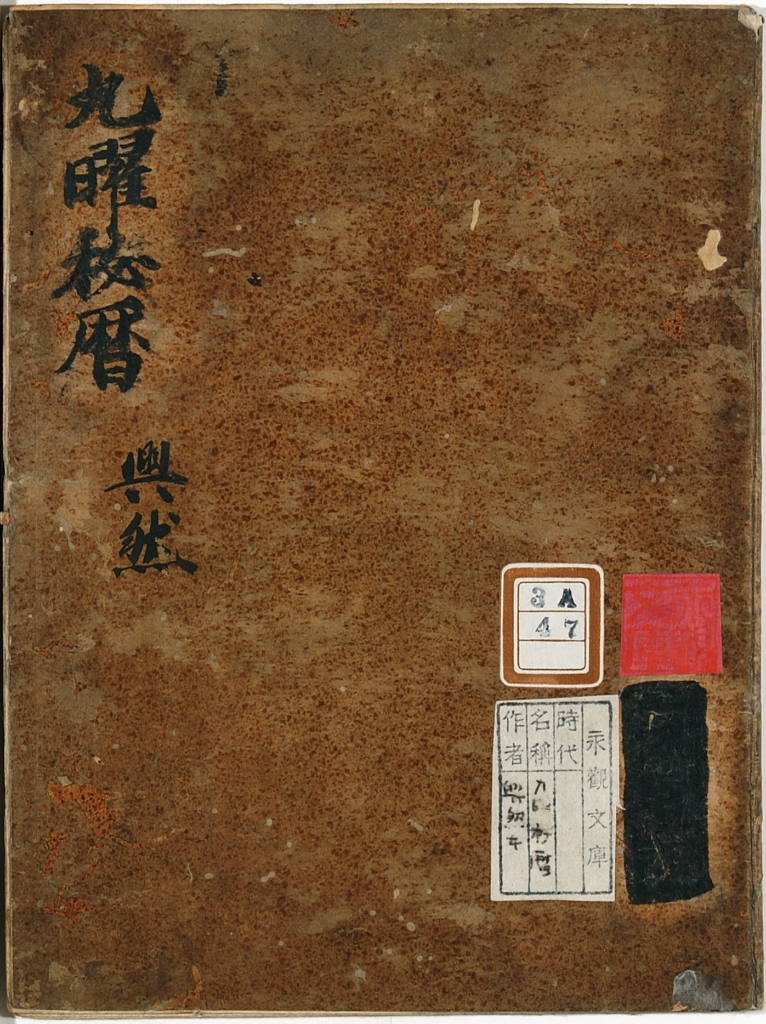 九曜秘暦
興然
3 A
4 7
永觀文庫
時代
名稱 九曜秘暦
作者 興然